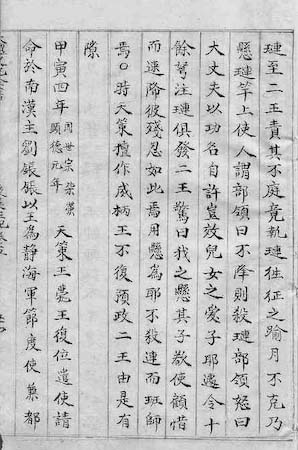 璉至二王責其不庭竟執璉徃征之踰月不克乃
懸璉竿上使人謂部領曰不降則殺璉部領怒曰
大丈夫以功名自許豈效兒女之愛子耶遽令十
餘弩注璉俱發二王驚曰我之懸其子欲使顧惜
而速降彼殘忍如此焉用懸為耶不殺連而班師
焉○時天策擅作威柄王不復預政二王由是有
隙
甲寅四年周世宗柴榮顯德元年天策王薨王復位遣使請
命於南漢主劉鋹鋹以王為静海軍節度使兼都